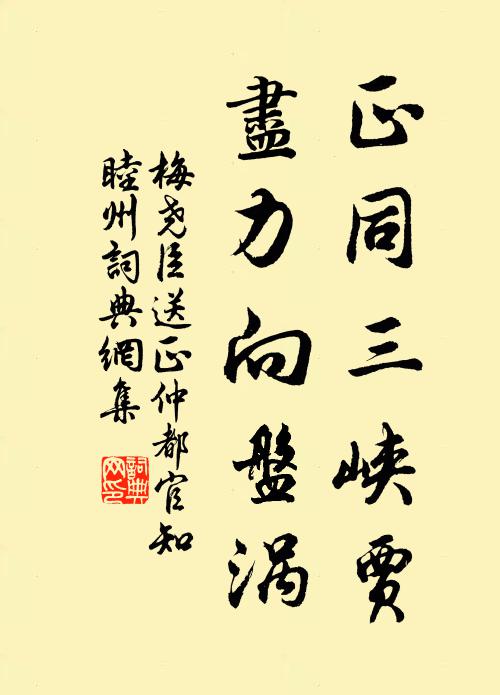 正同三峽賈
盡力向盤涡
梅尧臣送正仲都官知
睦州詞典網集
詞典
网印